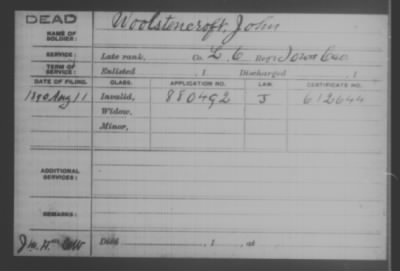 DEAD
NAME OF SOLDIER: Woolstencroft, John
SERVICE: Late rank, Co. L. 6 Reg't Iowa Cav
TERM OF SERVICE: Enlisted , 1 Discharged , 1
DATE OF FILING. CLASS. APPLICATION NO. LAW. CERTIFICATE NO.
1890 Aug 11 Invalid, 880492 J 612644
Widow,
Minor,
ADDITIONAL SERVICES:
REMARKS:
Died , 1 , at